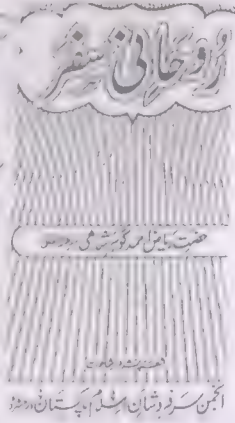 روحانی سفر
حضرت ریاض احمد گوہر شاہی
انجمن سرفروشان اسلام، پاکستان